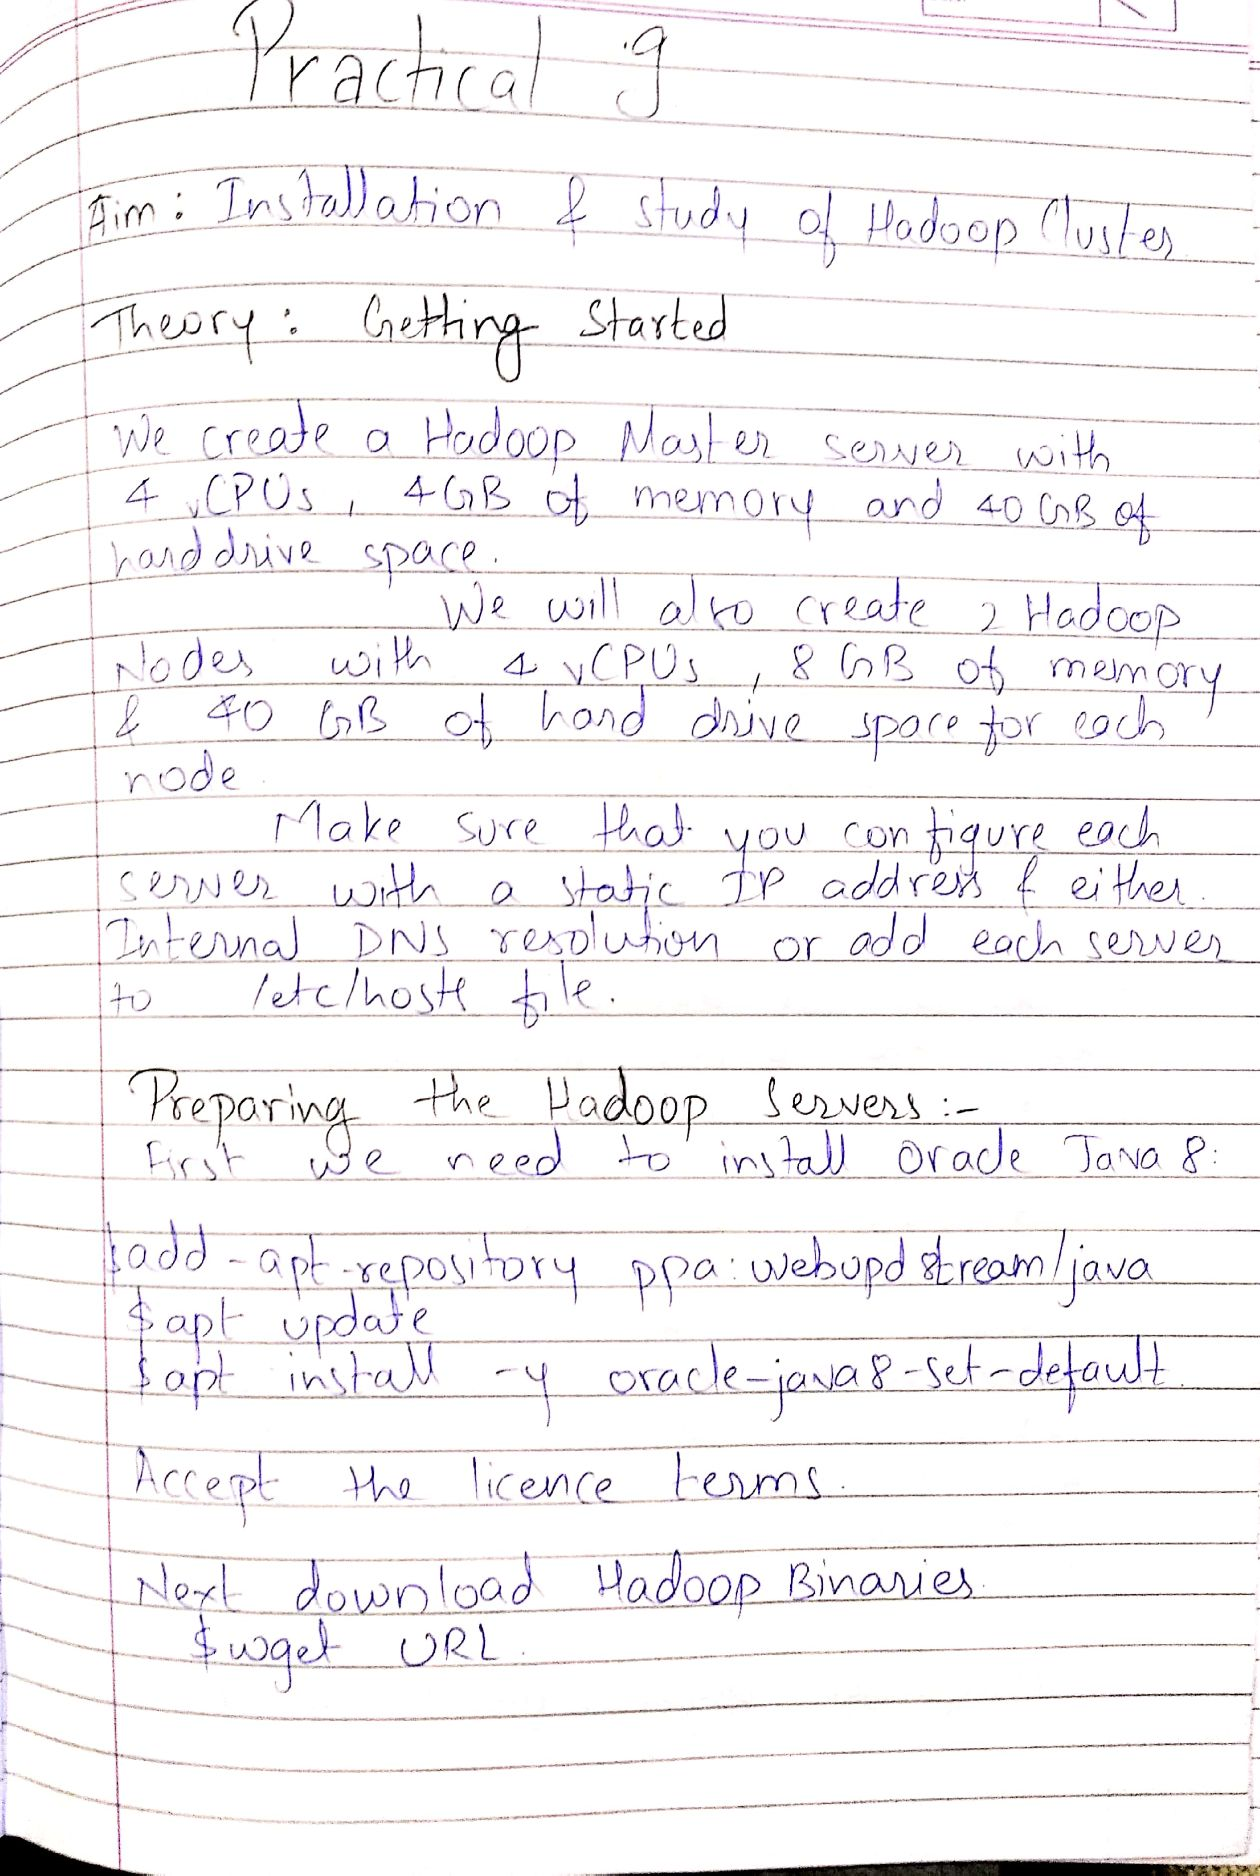 Practical : 9
Aim : Installation & study of Hadoop Cluster
Theory : Getting Started
We create a Hadoop Master server with
4 vCPUs, 4GB of memory and 40 GB of
hard drive space.
We will also create 2 Hadoop
Nodes with 4 vCPUs, 8 GB of memory
& 40 GB of hard drive space for each
node.
Make sure that you configure each
server with a static IP address & either
Internal DNS resolution or add each server
to /etc/hosts file.
Preparing the Hadoop Servers :-
First we need to install Oracle Java 8:
$add-apt-repository ppa:webupd8tream/java
$apt update
$apt install -y oracle-java8-set-default.
Accept the licence terms.
Next download Hadoop Binaries.
$wget URL.